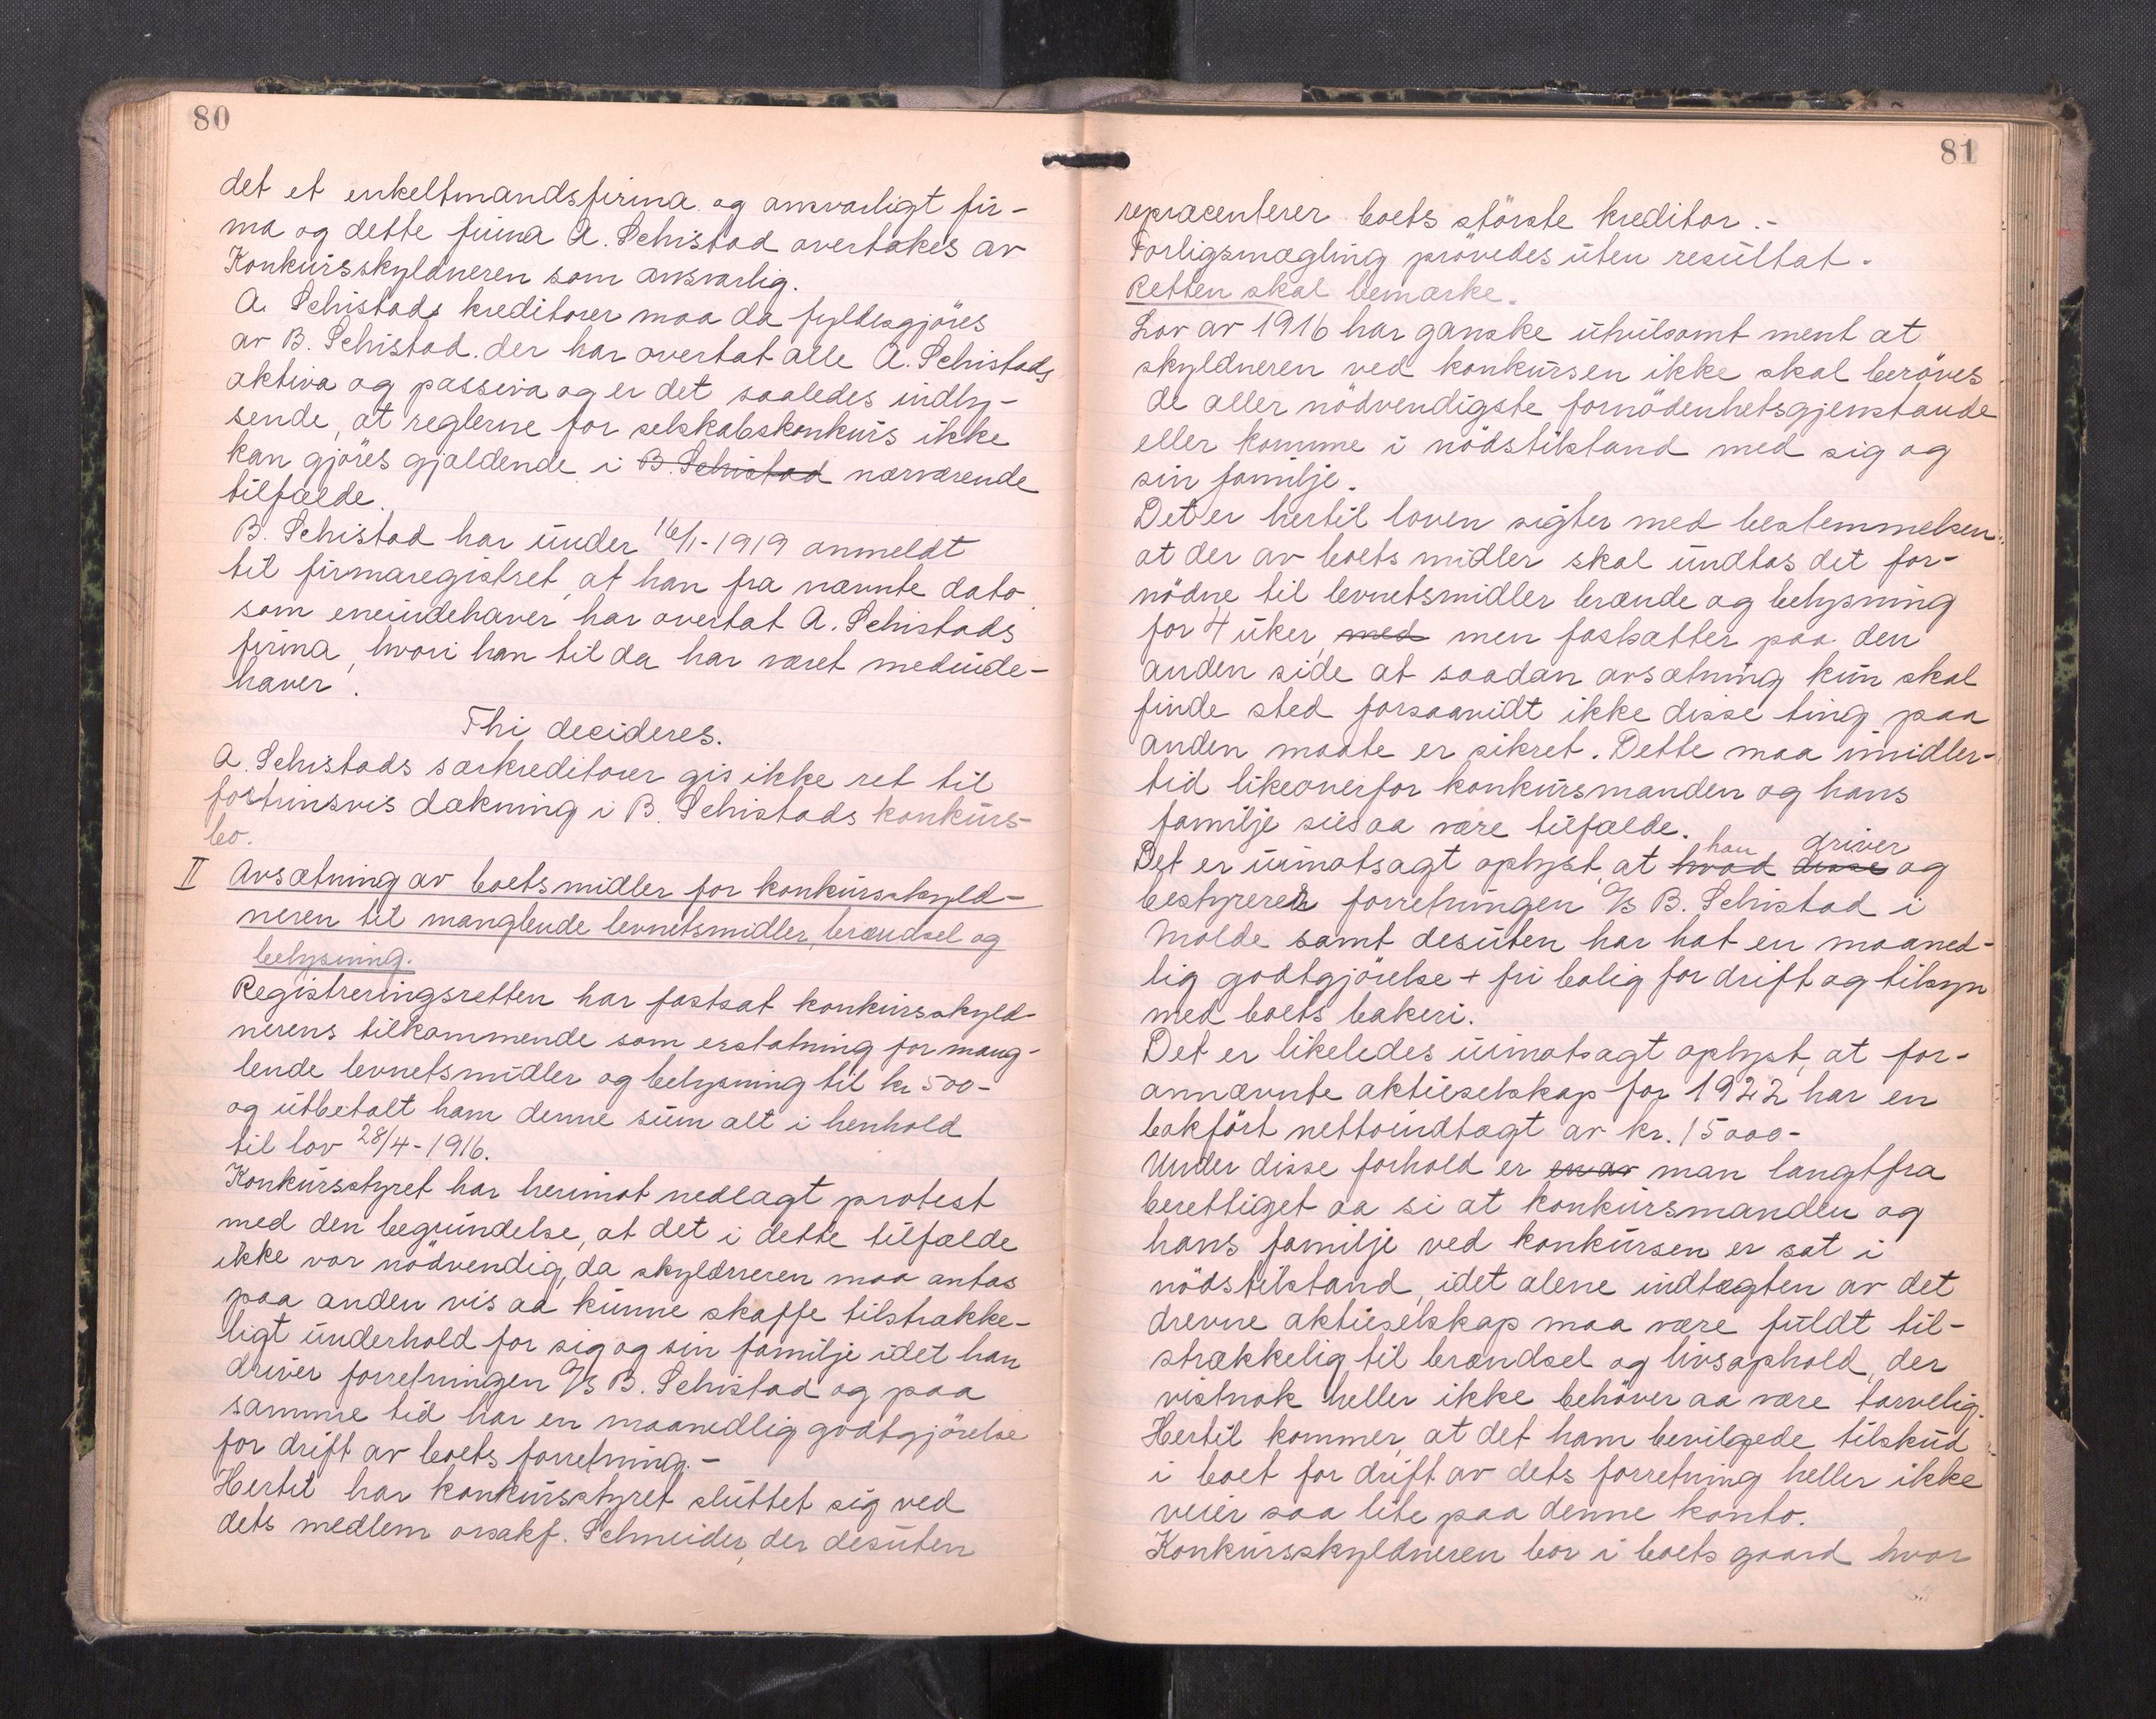 80
det et enkeltmandsfirma og ansvarligt fir-
ma og dette firma A. Schistad overtakes av
Konkursskyldneren som ansvarlig.
A. Schistads kreditorer maa da fyldesgjöres
av B. Schistad der har overtat alle A. Schistads
aktiva og passiva og er det saaledes indly-
sende, at reglerne for selskabskonkurs ikke
kan gjöres gjældende i B. Schistad nærværende
tilfælde.
B. Schistad har under 16/1-1919 anmeldt
til firmaregistret, at han fra nævnte dato
som eneindehaver har overtat A. Schistads
firma, hvori han til da har været medinde-
haver.
Thi decideres.
A. Schistads særkreditorer gis ikke ret til
fortrinsvis dækning i B. Schistads konkurs-
bo.
II Avsætning av boets midler for konkursskyld-
neren til manglende levnetsmidler, brændsel og
belysning.
Registreringsretten har fastsat konkursskyld-
nerens tilkommende som erstatning for mang-
lende levnetsmidler og belysning til kr 500-
og utbetalt ham denne sum alt i henhold
til lov 28/4-1916.
Konkursstyret har herimot nedlagt protest
med den begrundelse, at det i dette tilfælde
ikke var nödvendig, da skyldneren maa antas
paa anden vis aa kunne skaffe tilstrække-
ligt underhold for sig og sin familje idet han
driver forretningen A/S B. Schistad og paa
samme tid har en maanedlig godtgjörelse
for drift av boets forretning.-
Hertil har konkursstyret sluttet sig ved
dets medlem orsakf. Schneider, der desuten
81
repræcenterer boets störste kreditor.-
Forligsmægling prövedes uten resultat.
Retten skal bemærke.
Lov av 1916 har ganske utvilsomt ment at
skyldneren ved konkursen ikke skal beröves
de aller nödvendigste fornödenhetsgjenstande
eller komme i nödstilstand med sig og
sin familje.
Det er hertil loven sigter med bestemmelsen
at der av boets midler skal undtas det for-
nödne til levnetsmidler brænde og belysning
for 4 uker, med men fastsætter paa den
anden side at saadan avsætning kun skal
finde sted forsaavidt ikke disse ting paa
anden maate er sikret. Dette maa imidler-
tid likeoverfor konkursmanden og hans
familje siesaa være tilfælde.
Det er uimotsagt oplyst, at hvad han disse driver og
bestyrer forretningen A/S B. Schistad i
Molde samt desuten har hat en maaned-
lig godtgjörelse + fri bolig for drift og tilsyn
med boets bakeri.
Det er likeledes uimotsagt oplyst, at for-
annævnte aktieselskap for 1922 har en
bokfört nettoindtægt av kr. 15000-
Under disse forhold er man langtfra
berettiget aa si at konkursmanden og
hans familje ved konkursen er sat i
nödstilstand, idet alene indtægten av det
drevne aktieselskap maa være fuldt til-
strækkelig til brændsel og livsophold, der
vistnok heller ikke behöver aa være tarvelig.
Hertil kommer, at det ham bevilgede tilskud
i boet for drift av dets forretning heller ikke
veier saa lite paa denne konto.
Konkursskyldneren bor i boets gaard hvor